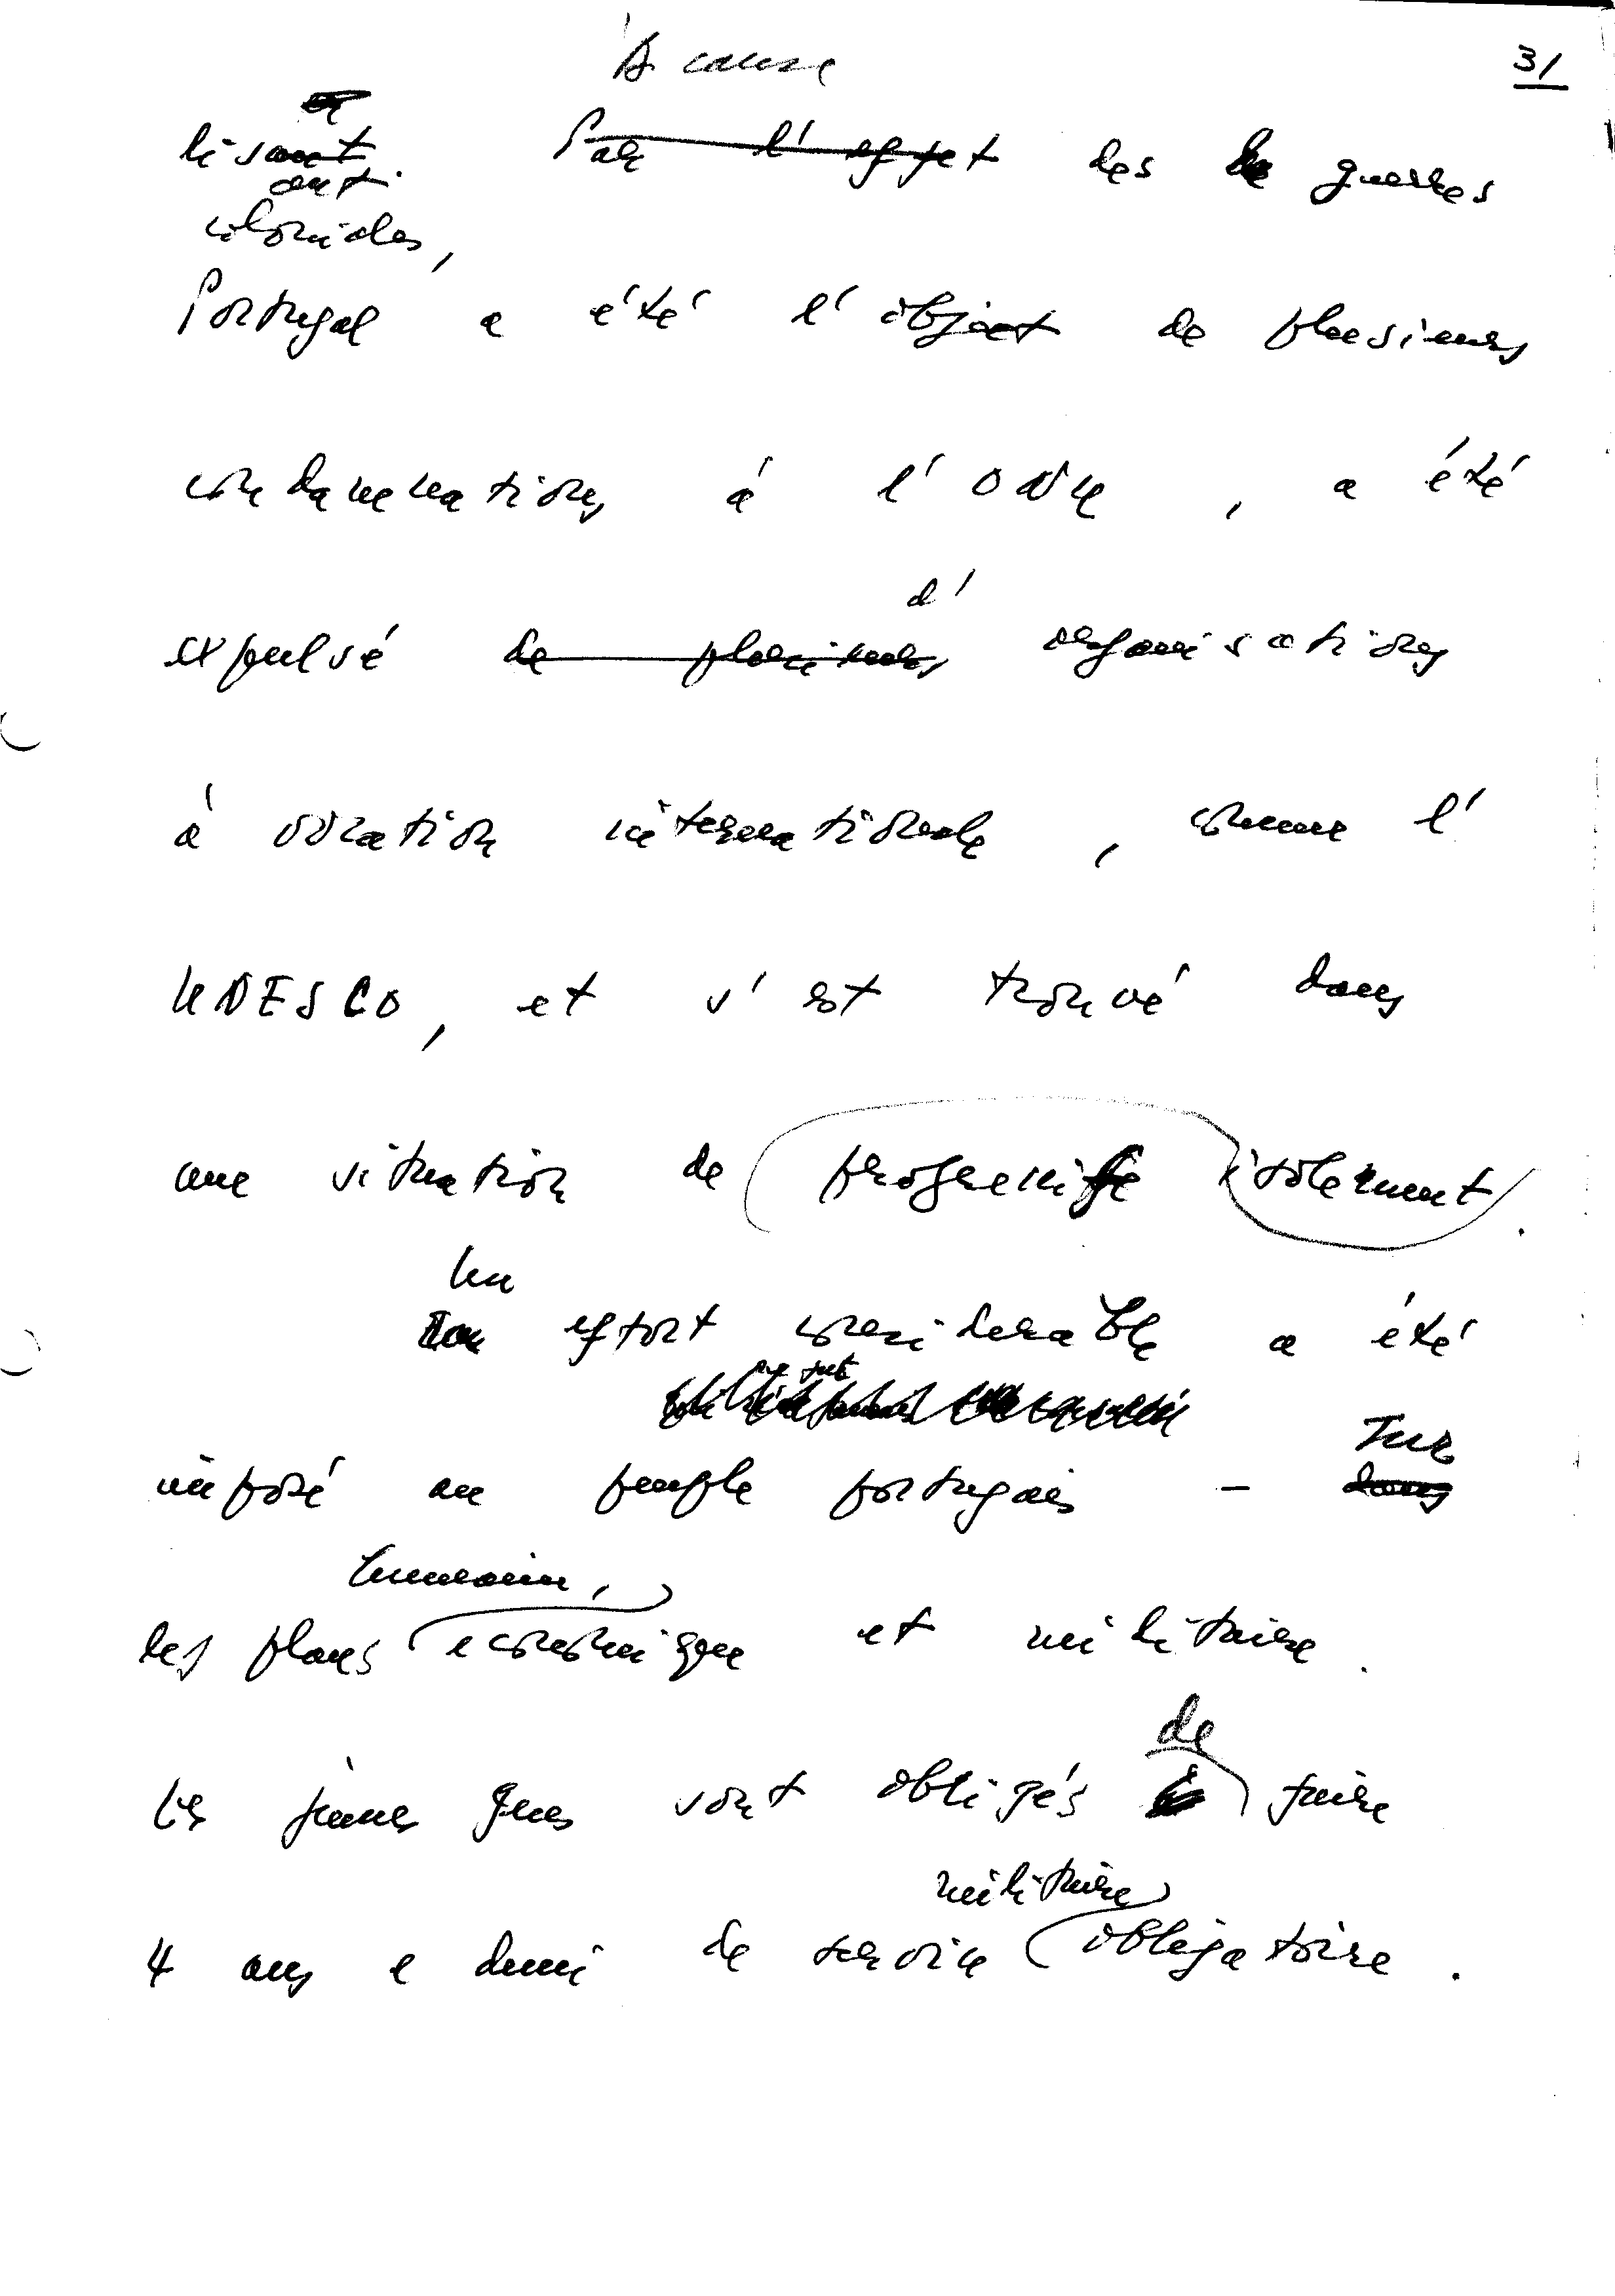 A cause
31
lisant. Par l'effet des guerres
ant.
coloniales,
Portugal a été l'object de plusieurs
condamnations á l'ONU, a été
d'
expulsé de plusieurs organisations
à vocation internationale, comme l'
UNESCO, et s'est trouvé dans
une situation de progressife isolement.
Un
effort considerable a été
imposé au peuple portugais - dans
sur
humain,
les plans economique et militaire.
de
les jeunes gens sont obligés faire
militaire
4 ans e demi de service obligatoire.